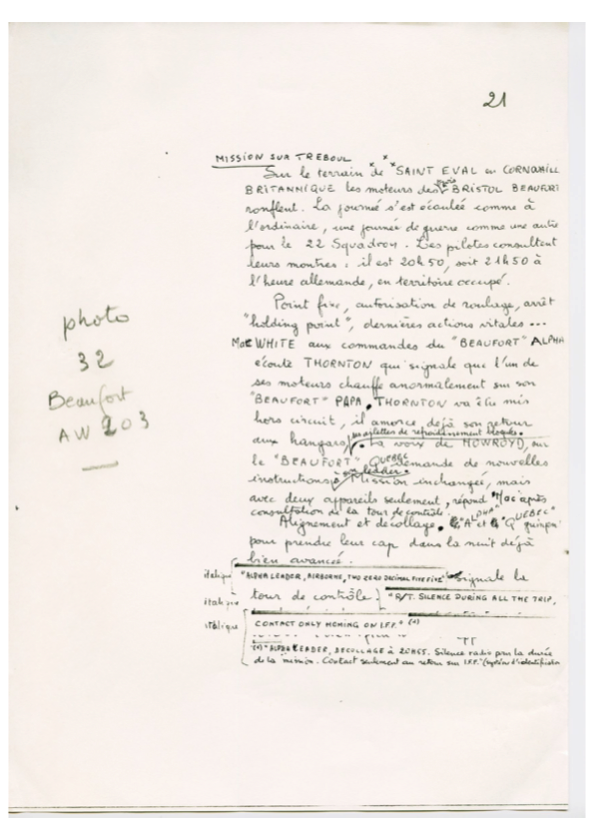 21
MISSION SUR TREBOUL
Sur le terrain de "SAINT EVAL en CORNOUAILLE
BRITANNIQUE les moteurs des trois BRISTOL BEAUFORT
ronflent. La journée s'est écoulée comme à
l'ordinaire, une journée de guerre comme une autre
pour le 22 Squadron. Les pilotes consultent
leurs montres : il est 20h50, soit 21h50 à
l'heure allemande, en territoire occupé.
Point fixe, autorisation de roulage, arrêt
"holding point", dernières actions vitales ...
Mac WHITE aux commandes du "BEAUFORT" ALPHA
écoute THORNTON qui signale que l'un de
ses moteurs chauffe anormalement sur son
"BEAUFORT" PAPA. THORNTON va être mis
hors circuit, il amorce déjà son retour
aux hangars, volets de refroidissement bloqués. La voix de HOWROYD, sur
le "BEAUFORT" QUEBEC demande de nouvelles
instructions à son leader. Mission inchangée, mais
avec deux appareils seulement, répond Mac après
consultation de la tour de contrôle.
Alignement et décollage. "A" ALPHA et "Q" QUEBEC grimpent
pour prendre leur cap dans la nuit déjà
bien avancée.
italique "ALPHA LEADER, AIRBORNE, TWO ZERO DECIMAL FIVE FIVE" signale la
tour de contrôle
italique "R/T. SILENCE DURING ALL THE TRIP,
italique CONTACT ONLY HOMING ON I.F.F." (*)
(*) "ALPHA LEADER, DECOLLAGE à 20H55. Silence radio pour la durée
de la mission. Contact seulement au retour sur I.F.F." (système d'identification
photo
32
Beaufort
AW 203